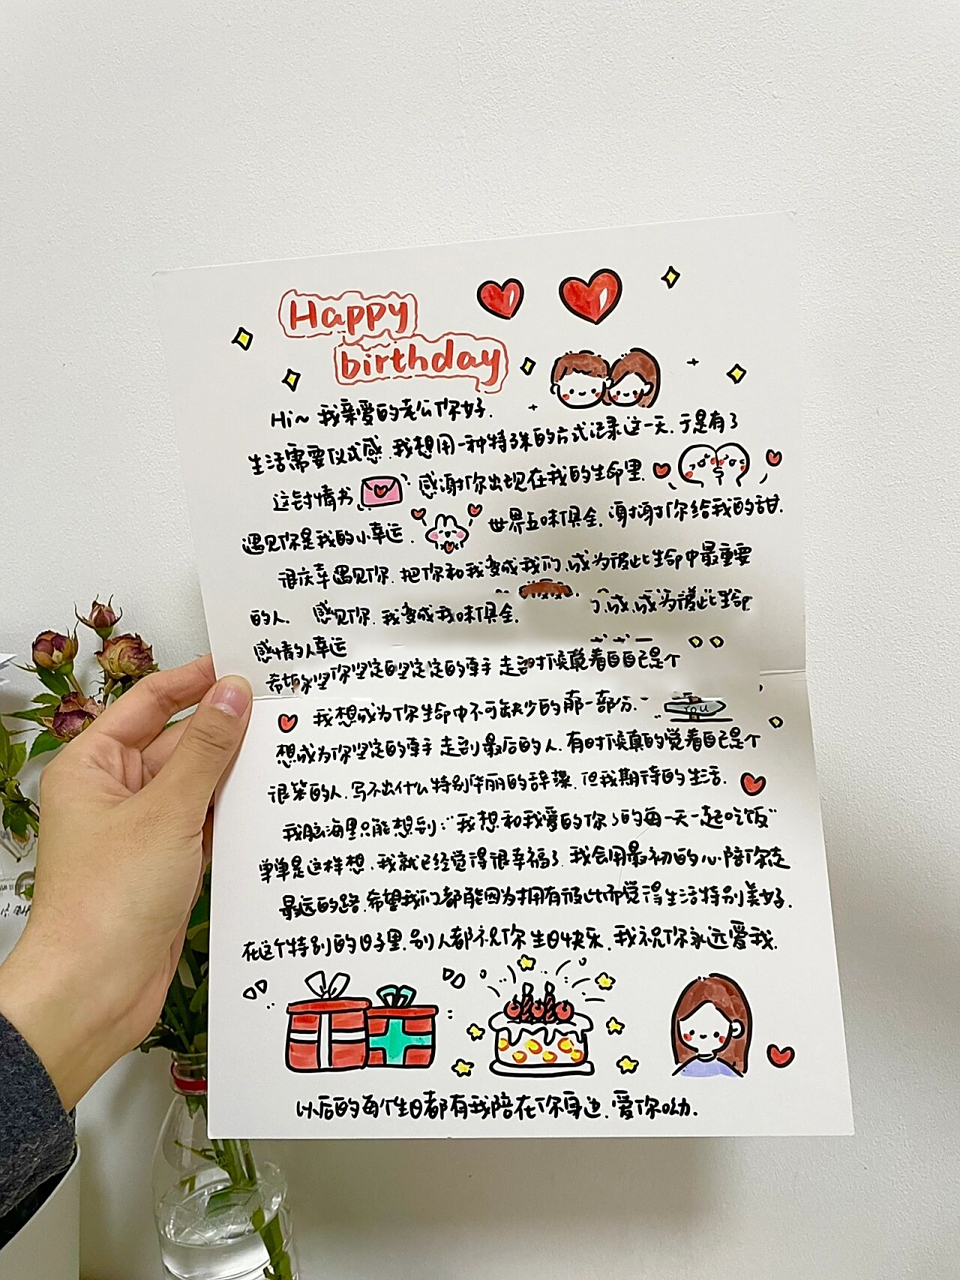 Happy
birthday
Hi~ 我亲爱的老公你好.
生活需要仪式感.我想用一种特殊的方式记录这一天.于是有了
这封情书 感谢你出现在我的生命里.
遇见你是我的小幸运. 世界五味俱全,谢谢你给我的甜.
很庆幸遇见你.把你和我变成我们,成为彼此生命中最重要
的人. 感见你.我变成我味俱全. 成,成为彼此生命
感情的人幸运
你坚定的坚定定的牵手 走到时候觉着自己是个
我想成为你生命中不可缺少的那一部分. you
想成为你坚定的牵手 走到最后的人.有时候真的觉着自己是个
很笨的人.写不出什么特别华丽的辞藻.但我期待的生活.
我脑海里只能想到:“我想和我爱的你的每一天一起吃饭”
单单是这样想.我就已经觉得很幸福了.我会用最初的心.陪你走
最远的路.希望我们都能因为拥有彼此而觉得生活特别美好.
在这个特别的日子里.别人都祝你生日快乐.我祝你永远爱我.
以后的每个生日都有我陪在你身边.爱你呦.